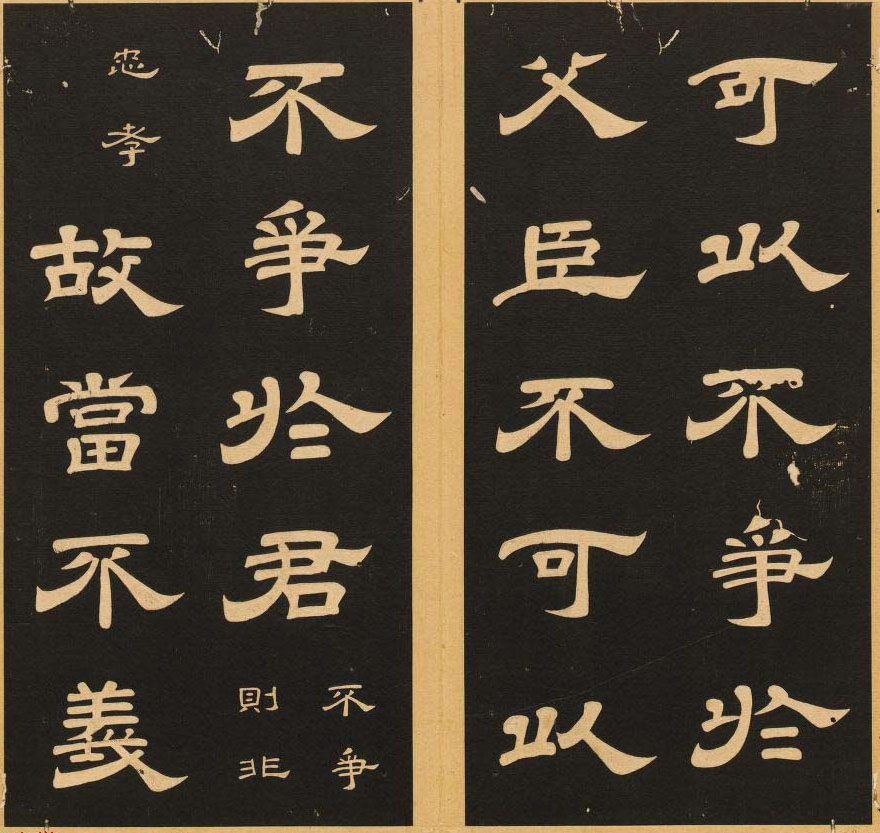 可以不爭於
父臣不可以
不爭於君
不爭
則非
忠孝
故當不義